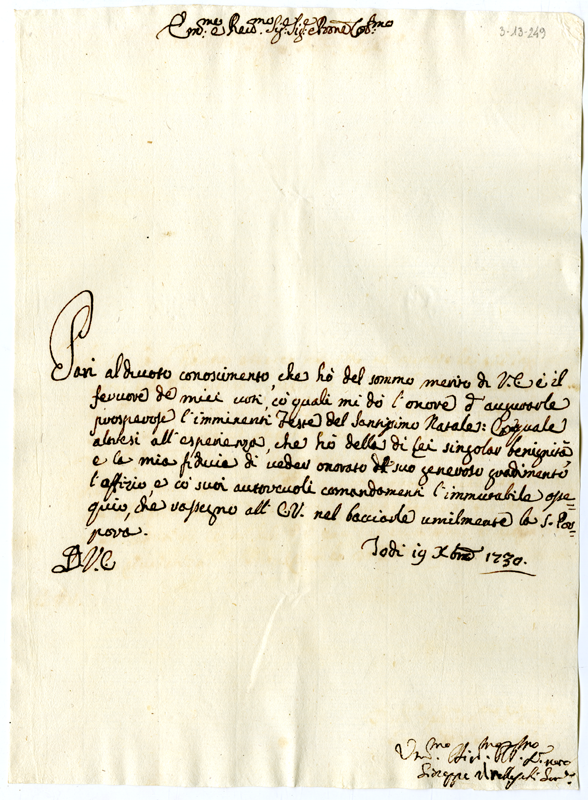 Em.mo e Rev.mo Sig.r Sig.r e Prone Col.mo
3-13-249
Pari al divoto conoscimento, che hò del sommo merito di V.E è il
fervore de miei voti, co quali mi dò l'onore d'augurarle
prosperose l'imminenti Feste del Santissimo Natale: Eguale
altresi all'esperienza, che hò della di Lei singolar benignità
e la mia fiducia di veder onorato dal suo generoso gradimento
l'offizio, e co' suoi autorevoli comandamenti l'immutabile osse=
quio, che rassegno all' E.V. nel bacciarle umilmente la S. Por=
pora.
D V.E
Todi 19 Xbre 1730.
Giuseppe